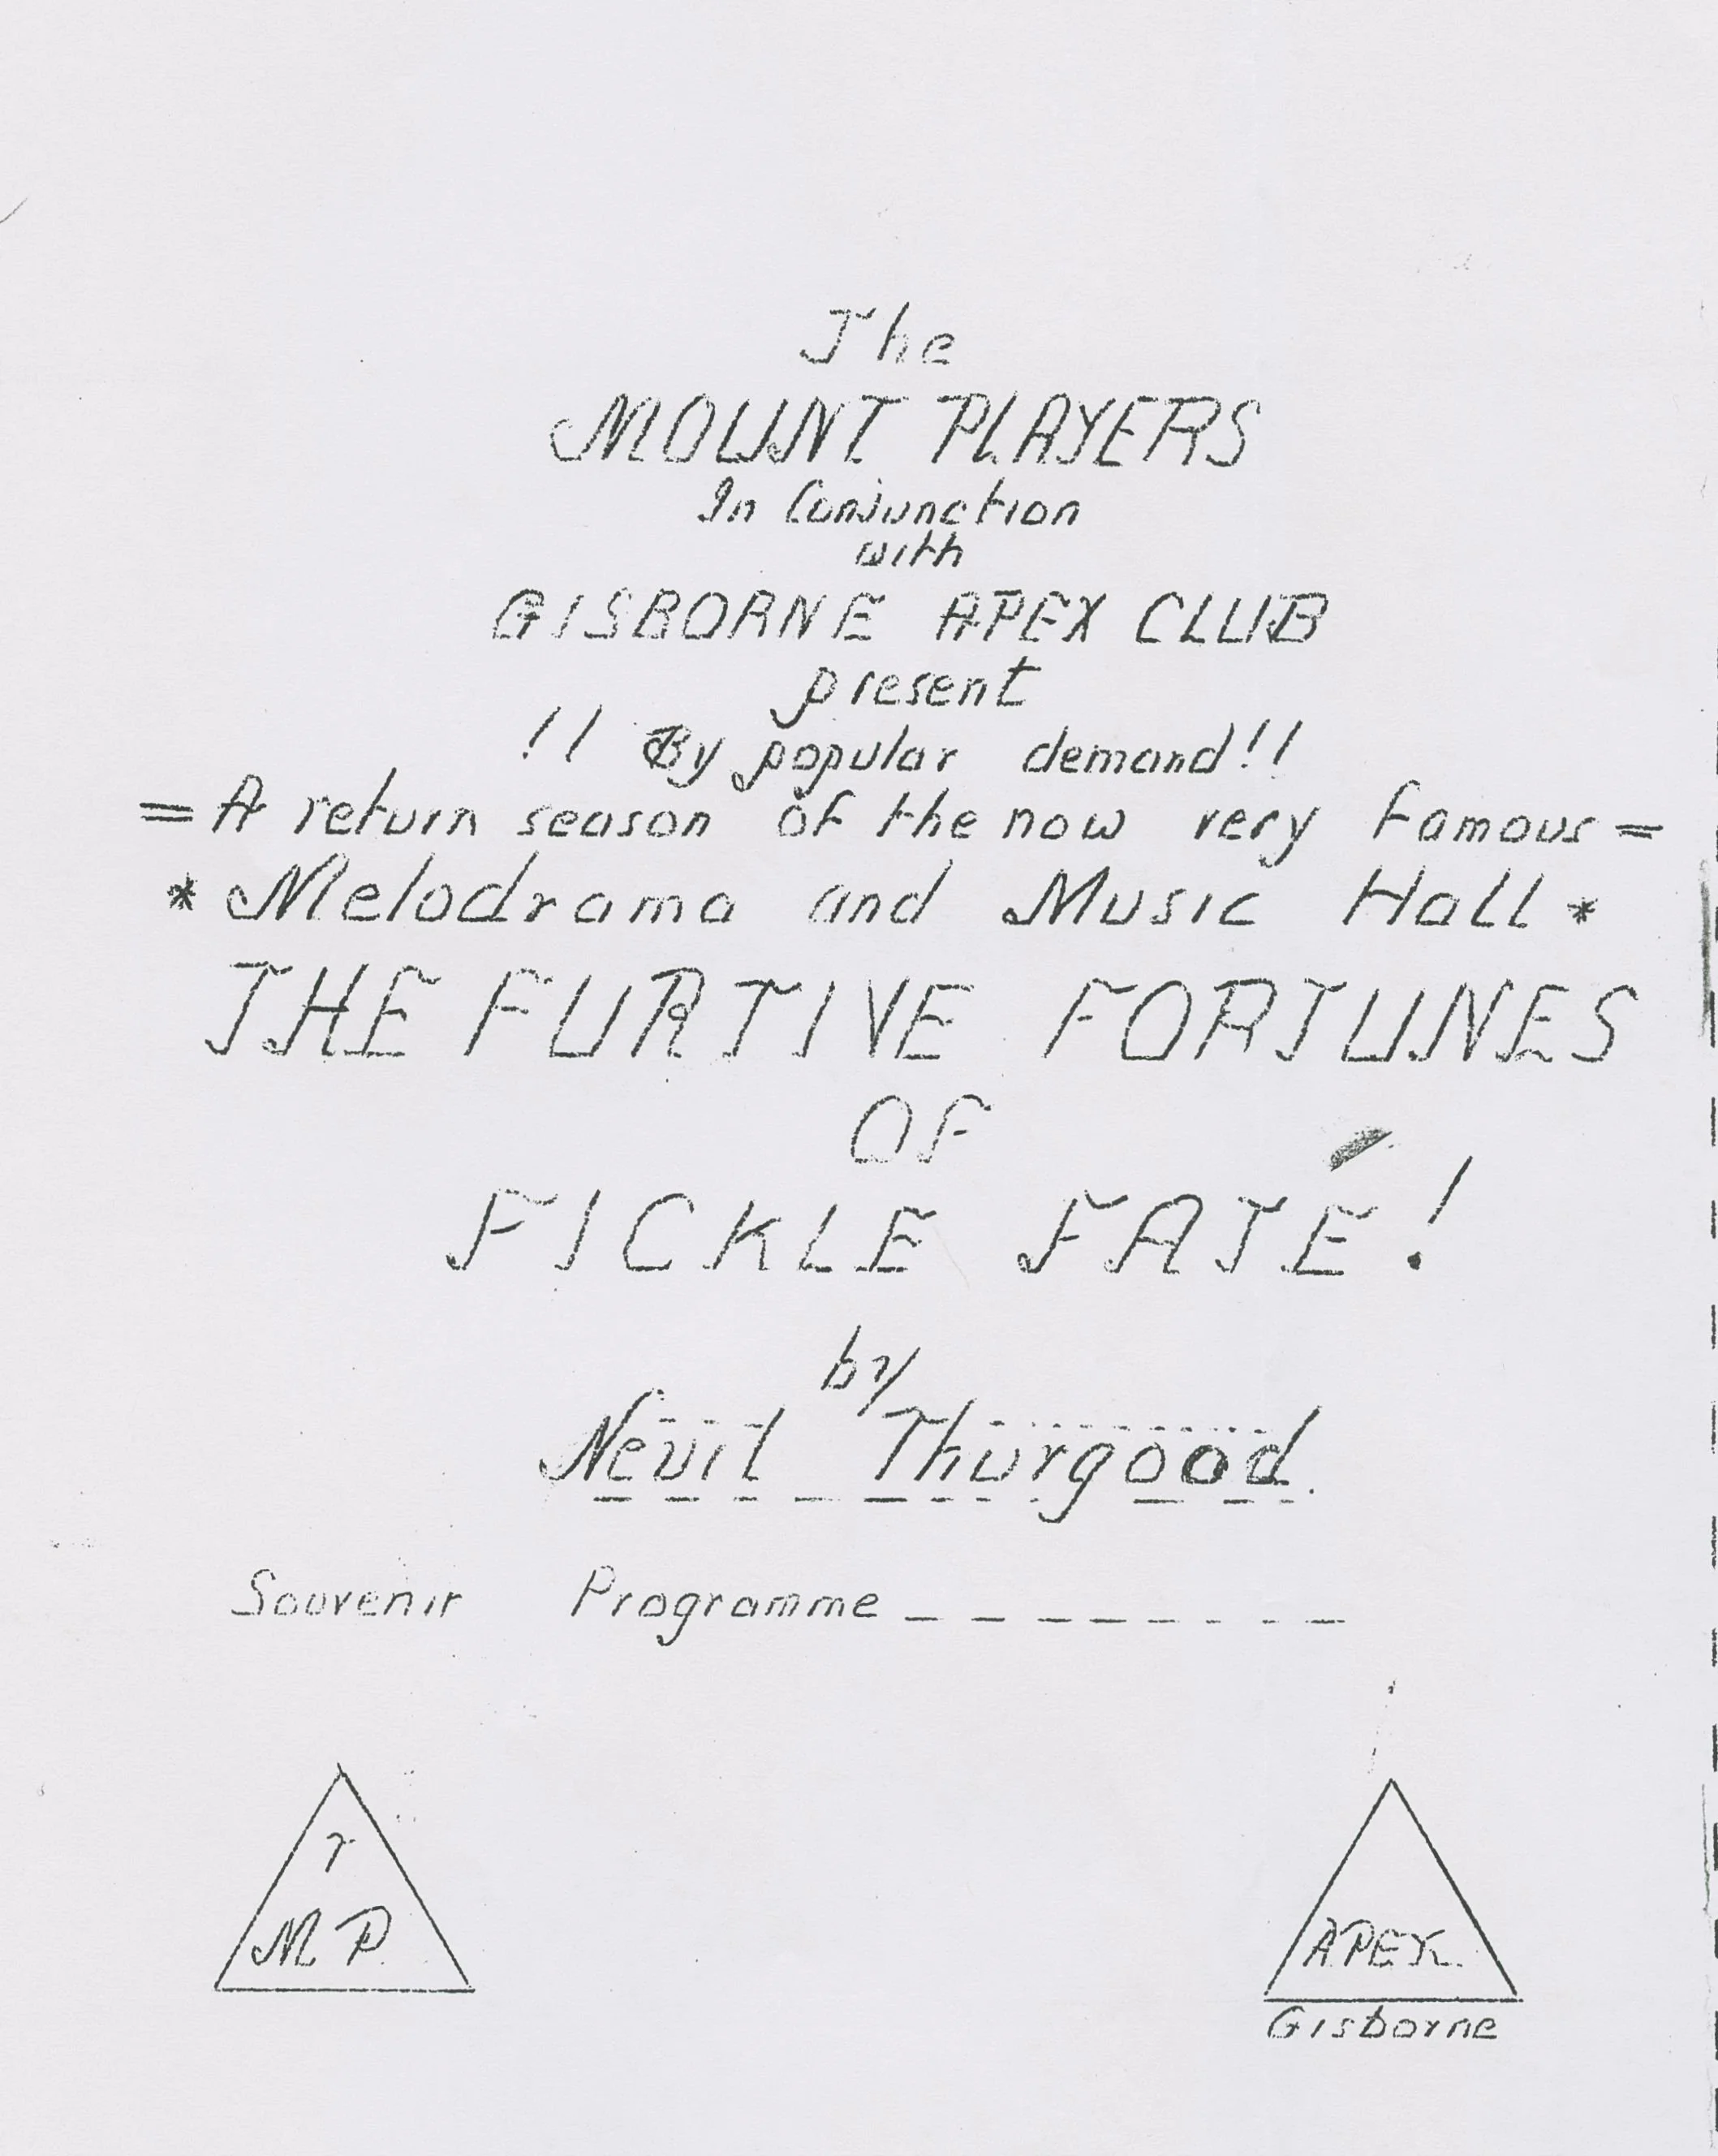 The
MOUNT PLAYERS
In Conjunction
with
GISBORNE APEX CLUB
present
!! By popular demand!!
= A return season of the now very famous =
* Melodrama and Music Hall *
THE FURTIVE FORTUNES
OF
FICKLE FATE!
by
Nevil Thurgood.
Souvenir Programme _ _ _ _ _ _ _ _ _
T
M P.
APEX.
Gisborne